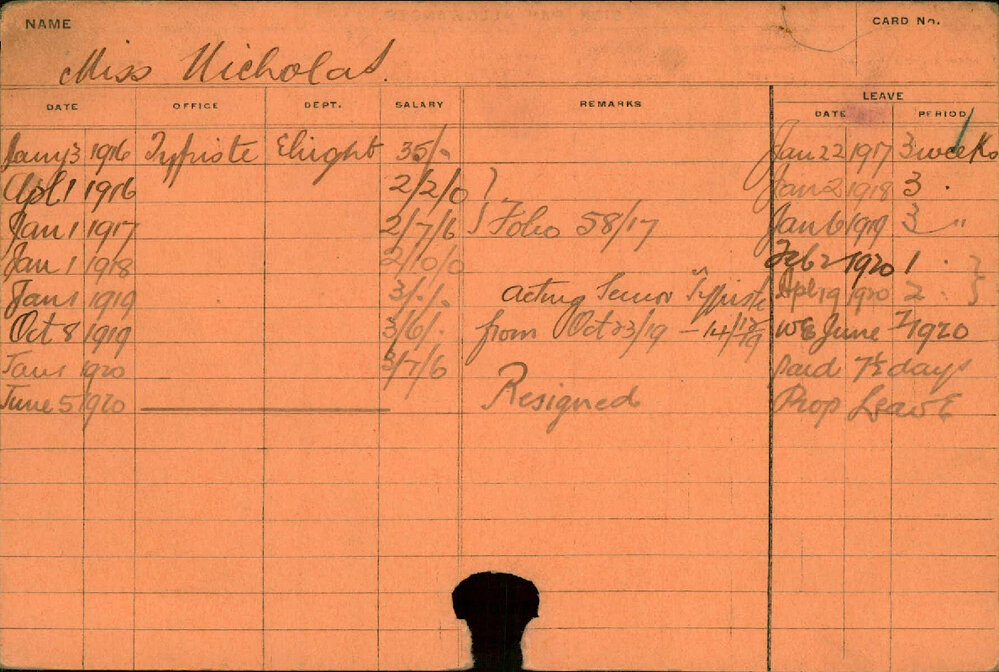 NAME CARD No.
Miss Nicholas.
DATE OFFICE DEPT. SALARY REMARKS LEAVE
DATE PERIOD
Jany 3 1916 Typiste Ehight 35/- Jan 22 1917 3 weeks
Apl 1 1916 2/2/0 } Jan 2 1918 3 "
Jan 1 1917 2/7/6 } Folio 58/17 Jan 6 1919 3 "
Jan 1 1918 2/10/0 Feb 2 1920 1 " }
Jan 1 1919 3/-/- Acting Senior Typiste Apl 19 1920 2 " }
Oct 8 1919 3/6/- from Oct 23/19 - 14/12/19 W.E June 1920
Jan 1 1920 3/7/6 Paid 7½ days
June 5 1920 Resigned Prop Leave